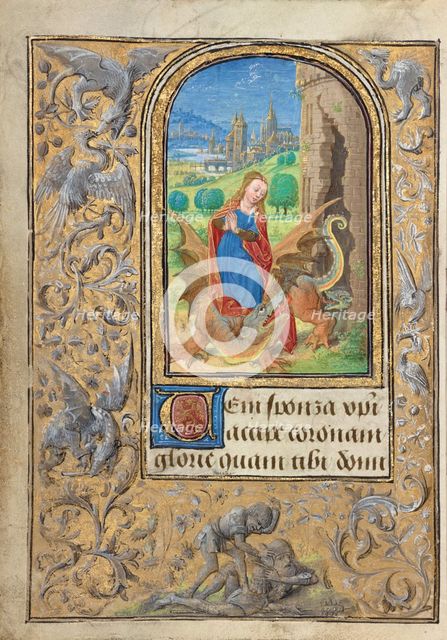 Heritage Heritage
Heritage Heritage
Veni sponza xpi
accipe coronam
glorie quam tibi domi